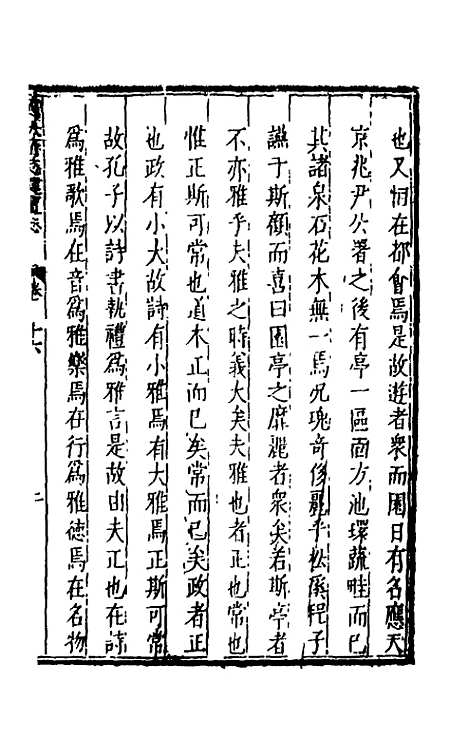 也又恫在都會焉是故遊者衆而園日有名應天
京兆尹公署之後有亭一區面方池環蔬畦而已
其諸泉石花木無一焉況瑰奇侈麗乎松溪程子
讌于斯顧而喜曰園亭之靡麗者衆矣若斯亭者
不亦雅乎夫雅之時義大矣夫雅也者正也常也
惟正斯可常也道木正而已矣常而已矣政者正
也政有小大故詩有小雅焉有大雅焉正斯可常
故孔子以詩書執禮為雅言是故由夫正也在詩
為雅歌焉在音為雅樂焉在行為雅德焉在名物
卷 十六
二